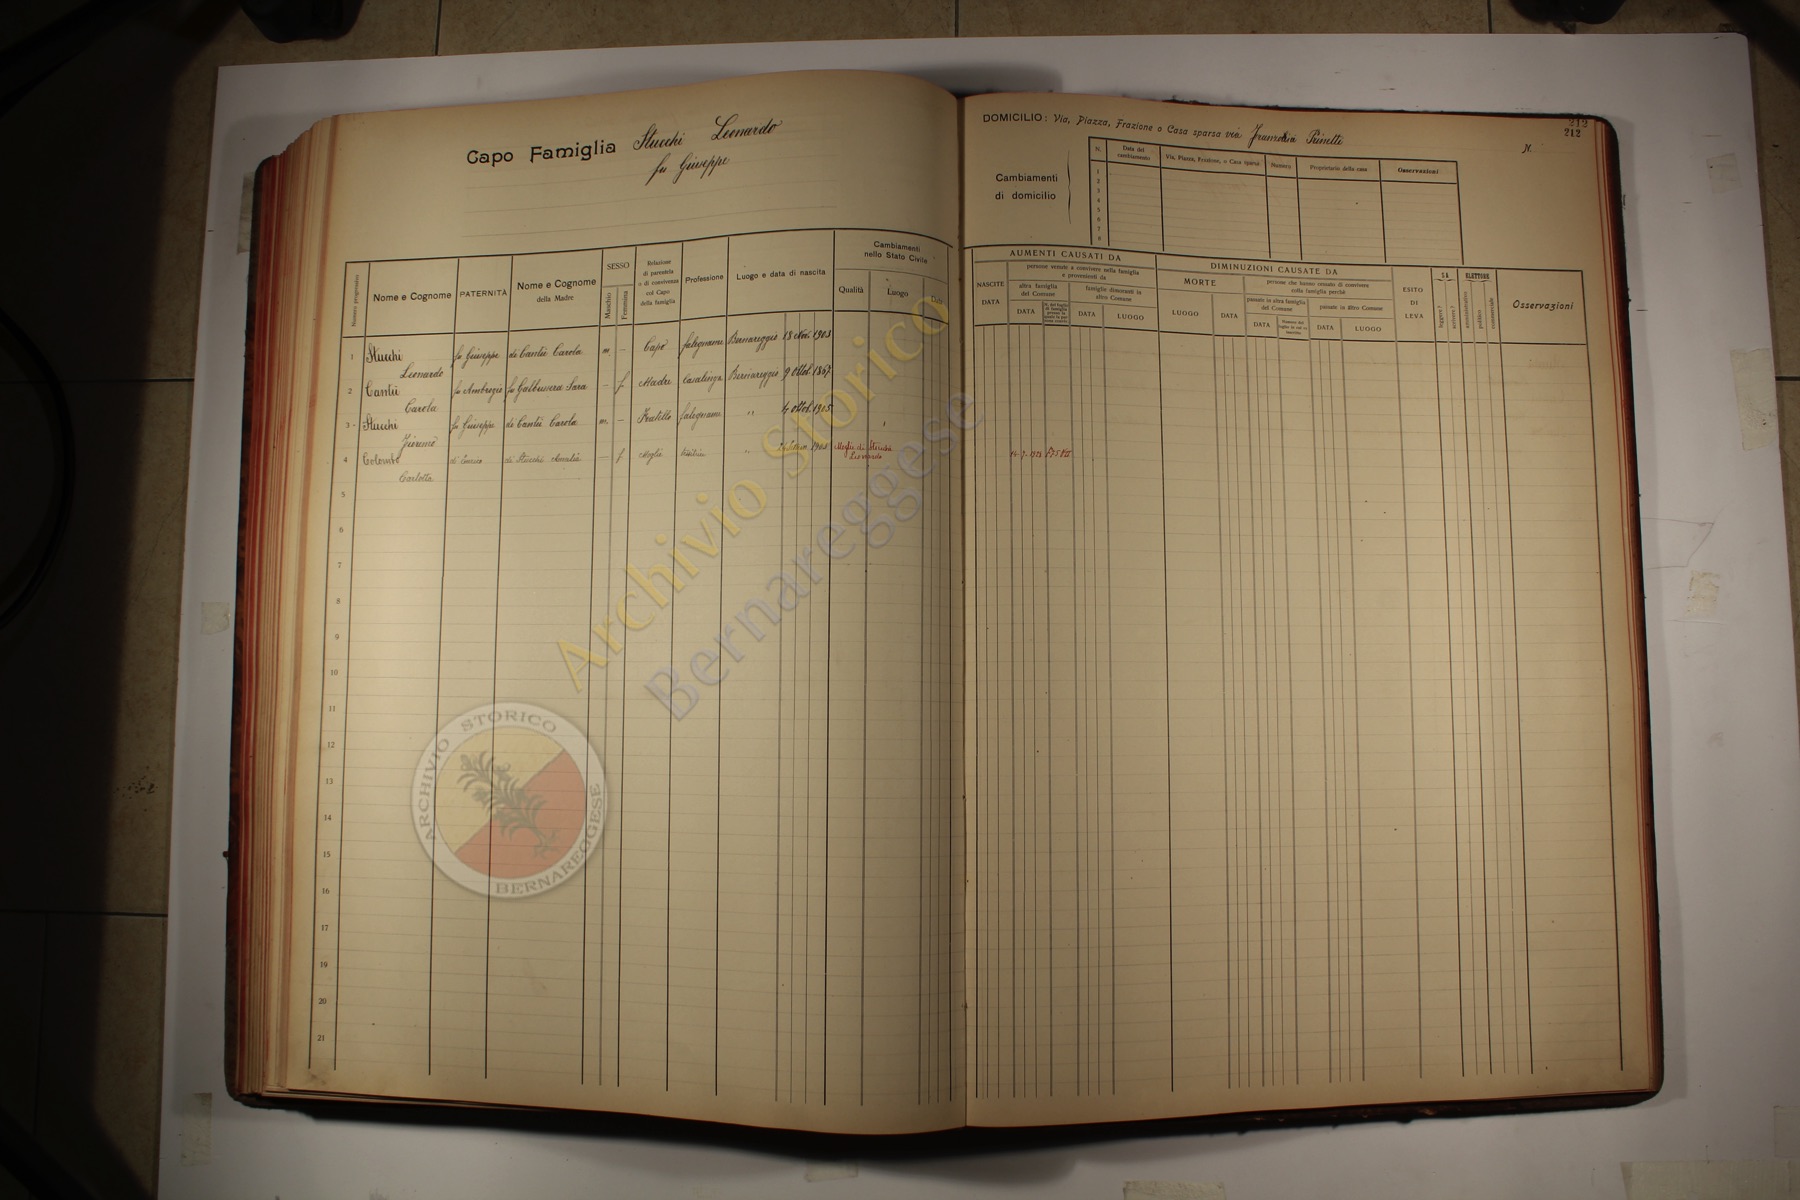 Capo Famiglia Stucchi Leonardo
fu Giuseppe
Numero progressivo
Nome e Cognome
PATERNITÀ
Nome e Cognome
della Madre
SESSO
Maschio
Femmina
Relazione
di parentela
o di convivenza
col Capo
della famiglia
Professione
Luogo e data di nascita
Cambiamenti
nello Stato Civile
Qualità
Luogo
Data
1 Stucchi fu Giuseppe di Cantù Carola m. – Capo falegname Bernareggio 18 1903
Leonardo
2 Cantù fu Ambrogio fu Galbussera Sara – f. Madre Casalinga Bernareggio 9 Ottob. 1867
Carola
3 Stucchi fu Giuseppe di Cantù Carola m. – Fratello falegname " 4 Ottob. 1905
4 Colombo di Enrico di Stucchi Amalia – f. Moglie " 1903 Moglie di Stucchi
Carlotta Leonardo
5
6
7
8
9
10
11
12
13
14
15
16
17
18
19
20
21
DOMICILIO: Via, Piazza, Frazione o Casa sparsa via Prinetti N.
212
212
Cambiamenti
di domicilio
N.
Data del
cambiamento
Via, Piazza, Frazione, o Casa sparsa
Numero
Proprietario della casa
Osservazioni
1
2
3
4
5
6
7
8
AUMENTI CAUSATI DA
NASCITE
DATA
persone venute a convivere nella famiglia
e provenienti da
altra famiglia
del Comune
DATA
famiglie dimoranti in
altro Comune
DATA
LUOGO
DIMINUZIONI CAUSATE DA
MORTE
LUOGO
DATA
persone che hanno cessato di convivere
colla famiglia perchè
passate in altra famiglia
del Comune
DATA
passate in altro Comune
DATA
LUOGO
ESITO
DI
LEVA
SA
leggere?
scrivere?
ELETTORE
amministrativo
politico
commerciale
Osservazioni
Archivio Storico
Bernareggese
ARCHIVIO STORICO
BERNAREGGESE